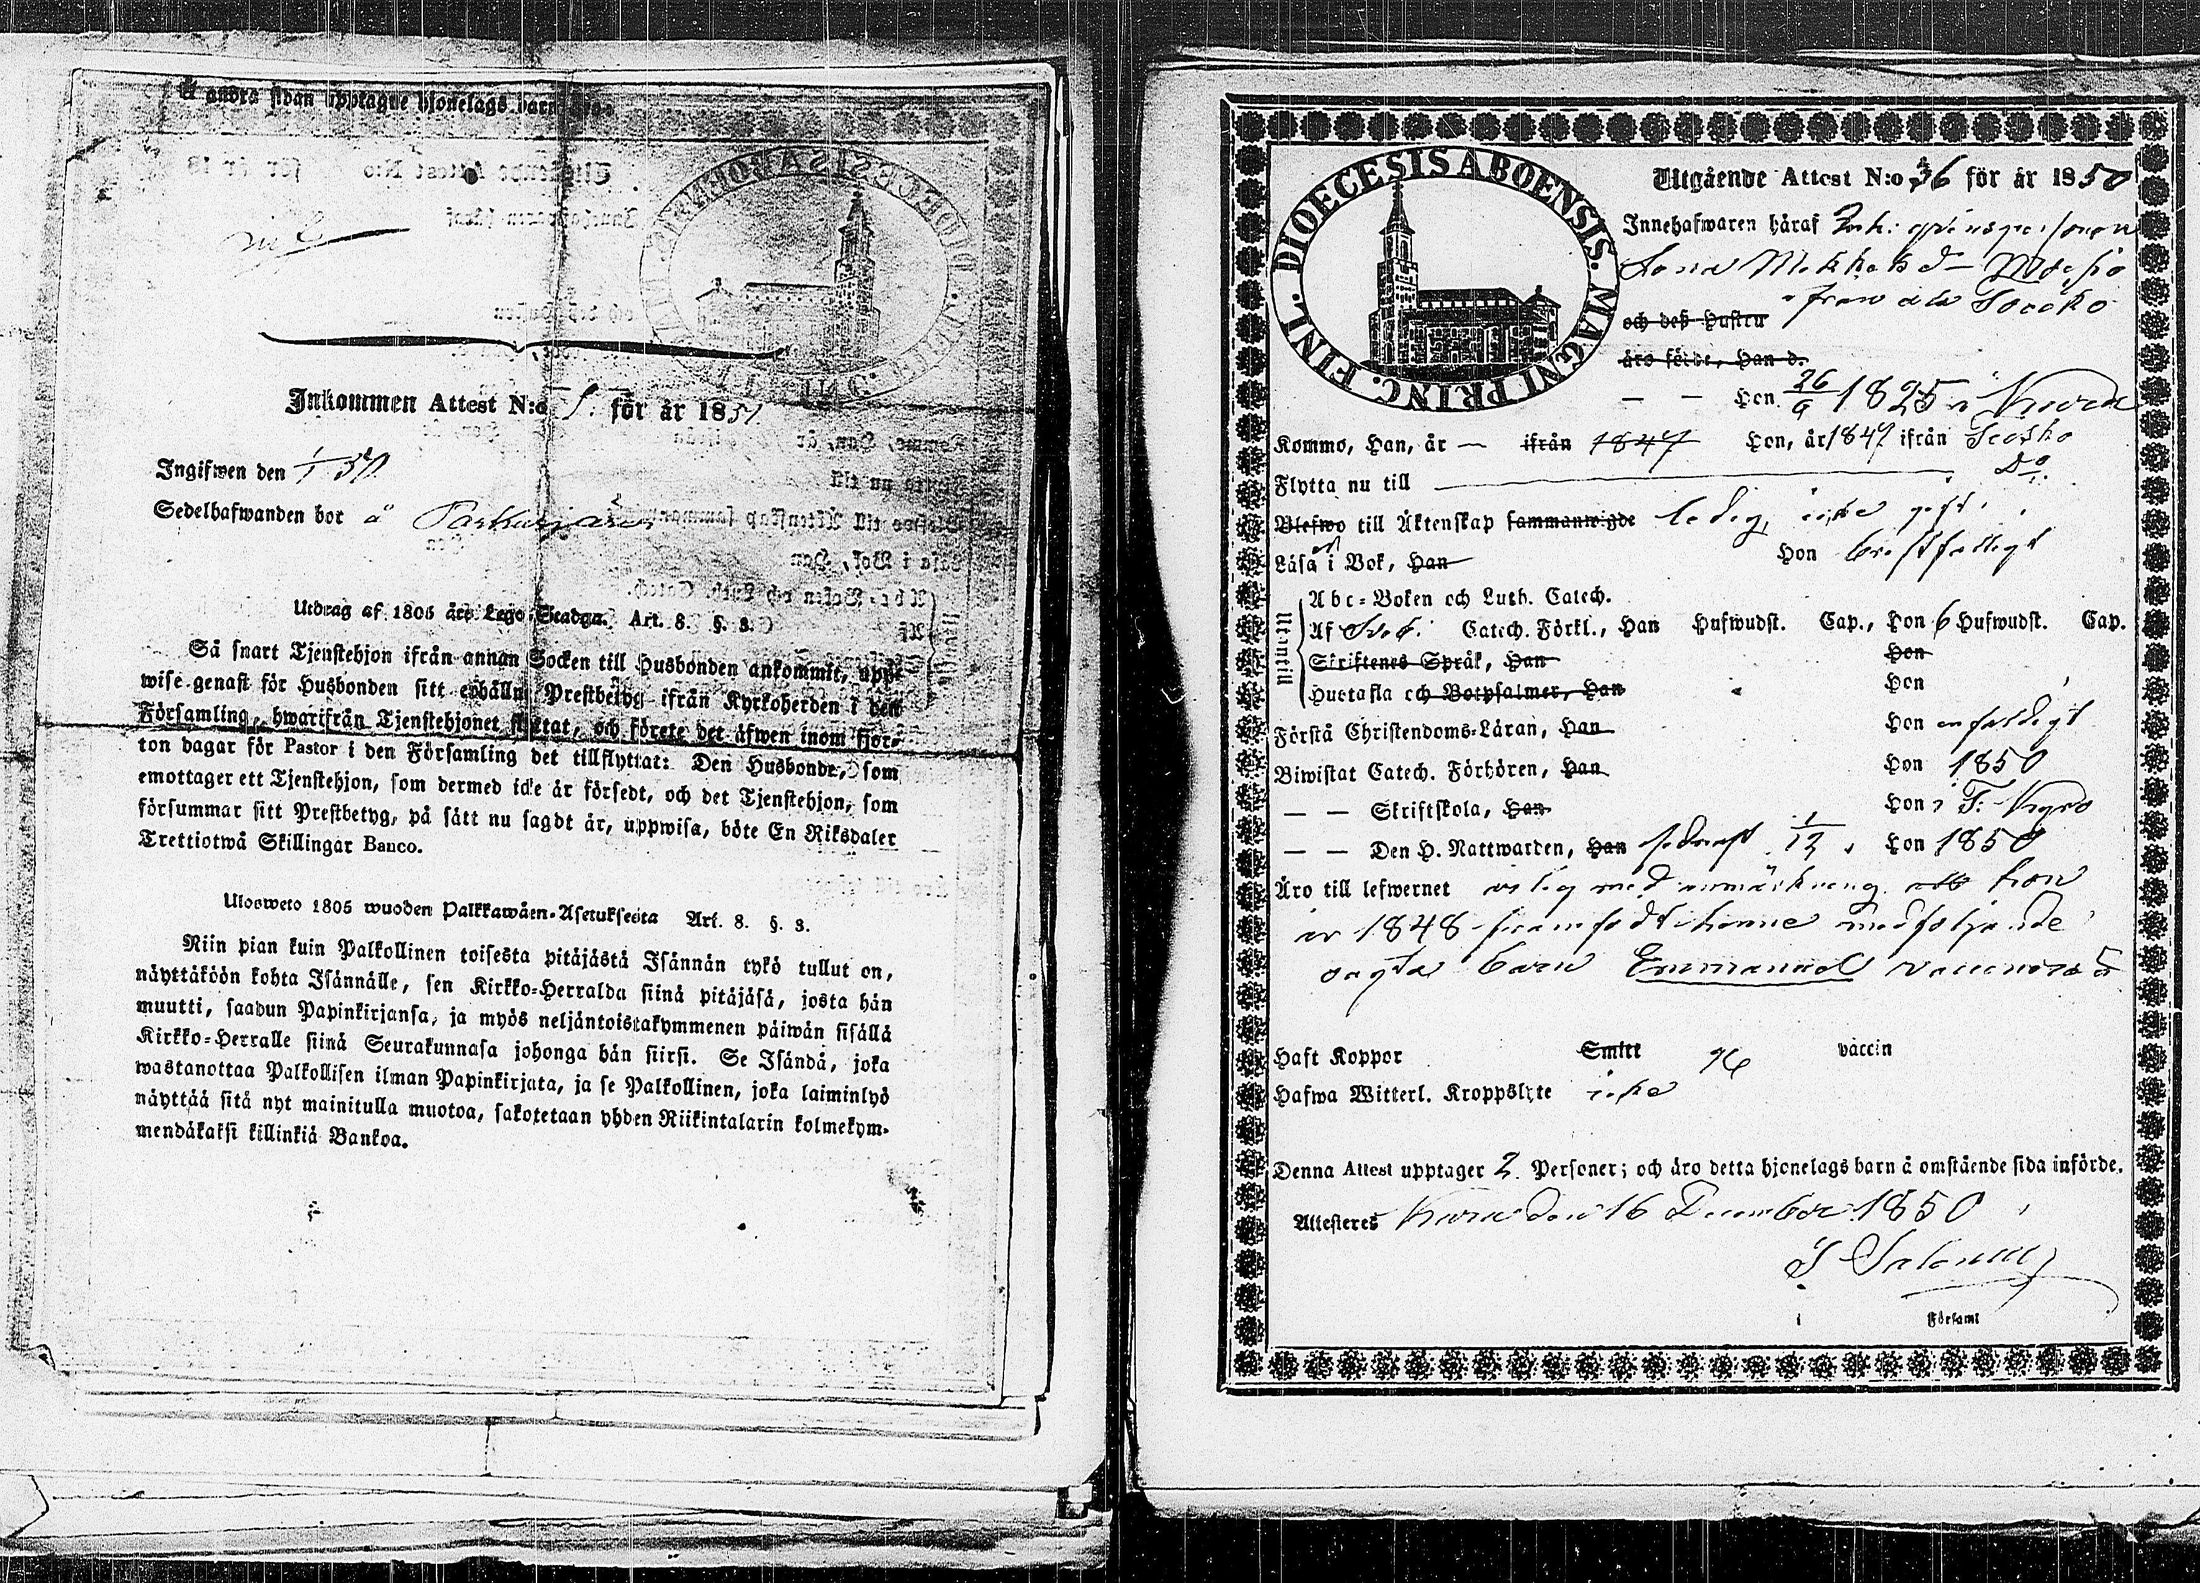 å andra sidan upptagne hjonelags barn äro:
Inkommen Attest N:o 1. för år 1851
Ingifwen den 1/1 51.
Sedelhafwanden bor å
Utdrag af 1805 års Lego-Stadga. Art. 8. §. 3.
Så snart Tjenstehjon ifrån annan Socken till Husbonden ankommit, uppwise
wise genast för Husbonden sitt erhållne Prestbetyg ifrån Kyrkoherden i den
Församling, hwarifrån Tjenstehjonet flyttat, och förete det äfwen inom fjor-
ton dagar för Pastor i den Församling det tillflyttat: Den Husbonde, som
emottager ett Tjenstehjon, som dermed icke är försedt, och det Tjenstehjon, som
försummar sitt Prestbetyg, på sätt nu sagdt är, uppwisa, böte En Riksdaler
Trettiotwå Skillingar Banco.
Ulosweto 1805 wuoden Palkkawäen-Asetuksesta Art. 8. §. 3.
Niin pian kuin Palkollinen toisesta pitäjästä Isännän tykö tullut on,
näyttäköön kohta Isännälle, sen Kirkko-Herralda siinä pitäjäsä, josta hän
muutti, saadun Papinkirjansa, ja myös neljäntoistakymmenen päiwän sisällä
Kirkko-Herralle siinä Seurakunnasa johonga hän siirsi. Se Isändä, joka
wastanottaa Palkollisen ilman Papinkirjata, ja se Palkollinen, joka laiminlyö
näyttää sitä nyt mainitulla muotoa, sakotetaan yhden Riikintalarin kolmekym-
mendäkaksi killinkiä Bankoa.
DIOECESIS ABOENSIS. MAGNI PRINC. FINL.
Utgående Attest N:o 36 för år 1850
Innehafwaren häraf
från
och deß Hustru
äro födde, Han d.
— — Hon 26/9 1825 i
Kommo, Han, år — ifrån 1847 Hon, år 1847 ifrån
Flytta nu till D:o
Blefwo till Äktenskap sammanwigde ledig, icke gift
Läsa i Bok, Han Hon bristfälligt
Utantill
Abc-Boken och Luth. Catech.
Af Sveb. Catech. Förkl., Han Hufwudst. Cap., Hon 6 Hufwudst. Cap.
Skriftenes Språk, Han Hon
Hustafla och Botpsalmer, Han Hon
Förstå Christendoms-Läran, Han Hon enfaldigt
Biwistat Catech. Förhören, Han Hon 1850
— — Skriftskola, Han Hon i T. Kyro
— — Den H. Nattwarden, Han sednast 1/12 Hon 1850
Äro till lefwernet med anmärkning att hon
år 1848 framfödt henne medföljande
oägta barn Emmanuel
Haft Koppor Smitt vaccin
Hafwa Witterl. Kroppslyte icke
Denna Attest upptager 2 Personer; och äro detta hjonelags barn å omstående sida införde.
Attesteres den 16 December 1850
i Församl